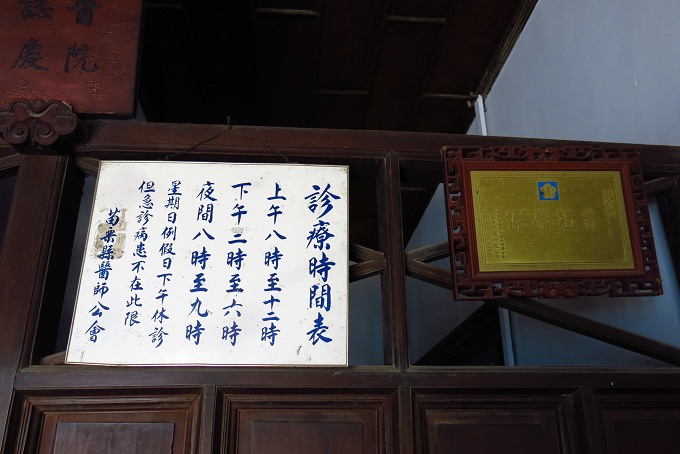 醫院
誌慶
診療時間表
上午八時至十二時
下午二時至六時
夜間八時至九時
星期日例假日下午休診
但急診病患不在此限
苗栗縣醫師公會